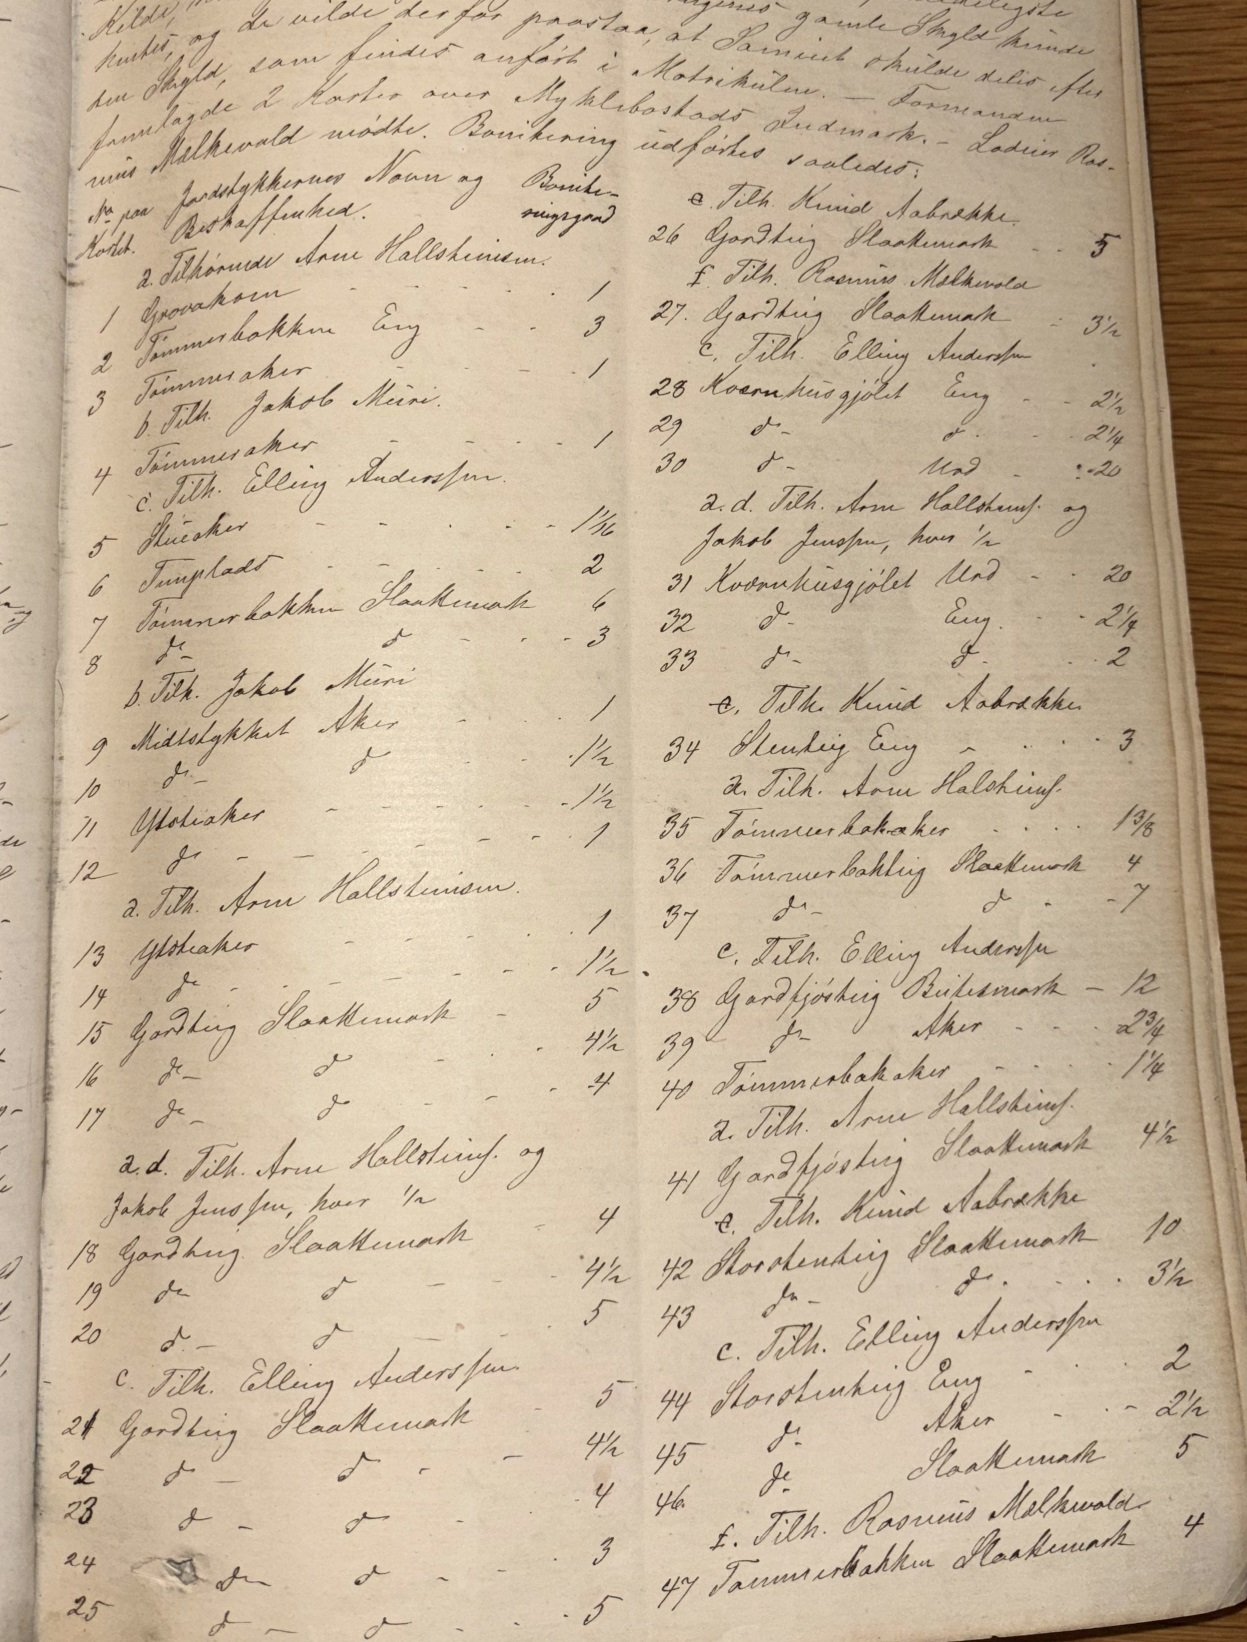 Kilde,
kustes, og de vilde derfor paastaa, at Samiut skulde delis efter
den Skyld, som findes anført i Matrikülen. — Formanden
fremlagde 2 Karter over Myklebostads Indmark. — Lodeier Ras-
müs Mælkevold mødte. Bonitering üdførtes saaledes:
No paa Kartet. Jordstykkernes Navn og Beskaffenhed. Bonite-
ringsgrad
a. Tilhørende Arne Hallsteinsen.
1 Grovakorn - - - 1
2 Tømmerbakken Eng - - 3
3 Tømmeraker - - - 1
b. Tilh. Jakob Müri.
4 Tømmeraker - - - 1
c. Tilh. Elling Anderssen.
5 Stüeaker - - - 1 1/16
6 Tunplads - - - 2
7 Tømmerbakken Slaattemark 6
8 do d - - - 3
b. Tilh. Jakob Müri
9 Midtstykket Aker - - 1
10 do - d - - 1 1/2
11 Ytsteaker - - - 1 1/2
12 do - - - 1
a. Tilh. Arne Hallsteinsen.
13 Ytsteaker - - - 1
14 do - - - 1 1/2
15 Gardteig Slaattemark - 5
16 do - d - - 4 1/2
17 do - do - - 4
a. d. Tilh. Arne Hallsteinss. og
Jakob Jenssen, hver 1/2
18 Gardteig Slaattemark - 4
19 do d - - 4 1/2
20 d - d - - 5
c. Tilh. Elling Anderssen
21 Gardteig Slaattemark - 5
22 d - d - - 4 1/2
23 d - d - - 4
24 do d - - 3
25 d - d - - 5
e. Tilh. Knüd Aabrække.
26 Gardteig Slaattemark - - 5
f. Tilh. Rasmüs Mælkevold
27. Gardteig Slaattemark - 3 1/2
c. Tilh. Elling Anderssen
28 Kværnhusgjølet Eng - - 2 1/2
29 d - d. - - 2 1/4
30 d - Urd - - 20
a. d. Tilh. Arne Hallsteinss. og
Jakob Jenssen, hver 1/2
31 Kværnhüsgjølet Urd - - 20
32 d - Eng. - - 2 1/4
33 d - d. - - 2
e. Tilh. Knüd Aabrække
34 Stenteig Eng - - - 3
a. Tilh. Arne Halsteinss.
35 Tømmerbakaker - - - 1 3/8
36 Tømmerbakteig Slaattemark 4
37 d - d - - 7
c. Tilh. Elling Anderssen
38 Gardfjøsteig Beitesmark - 12
39 do Aker - - - 2 3/4
40 Tømmerbakaker - - - 1 1/4
a. Tilh. Arne Hallsteinss.
41 Gardfjøsteig Slaattemark 4 1/2
e. Tilh. Knüd Aabrække
42 Storstenteig Slaattemark 10
43 do - do. - - - 3 1/2
c. Tilh. Elling Anderssen
44 Storstenteig Eng - - - 2
45 d - Aker - - - 2 1/2
46. do Slaattemark 5
f. Tilh. Rasmüs Mælkevold
47 Tømmerbakken Slaattemark 4